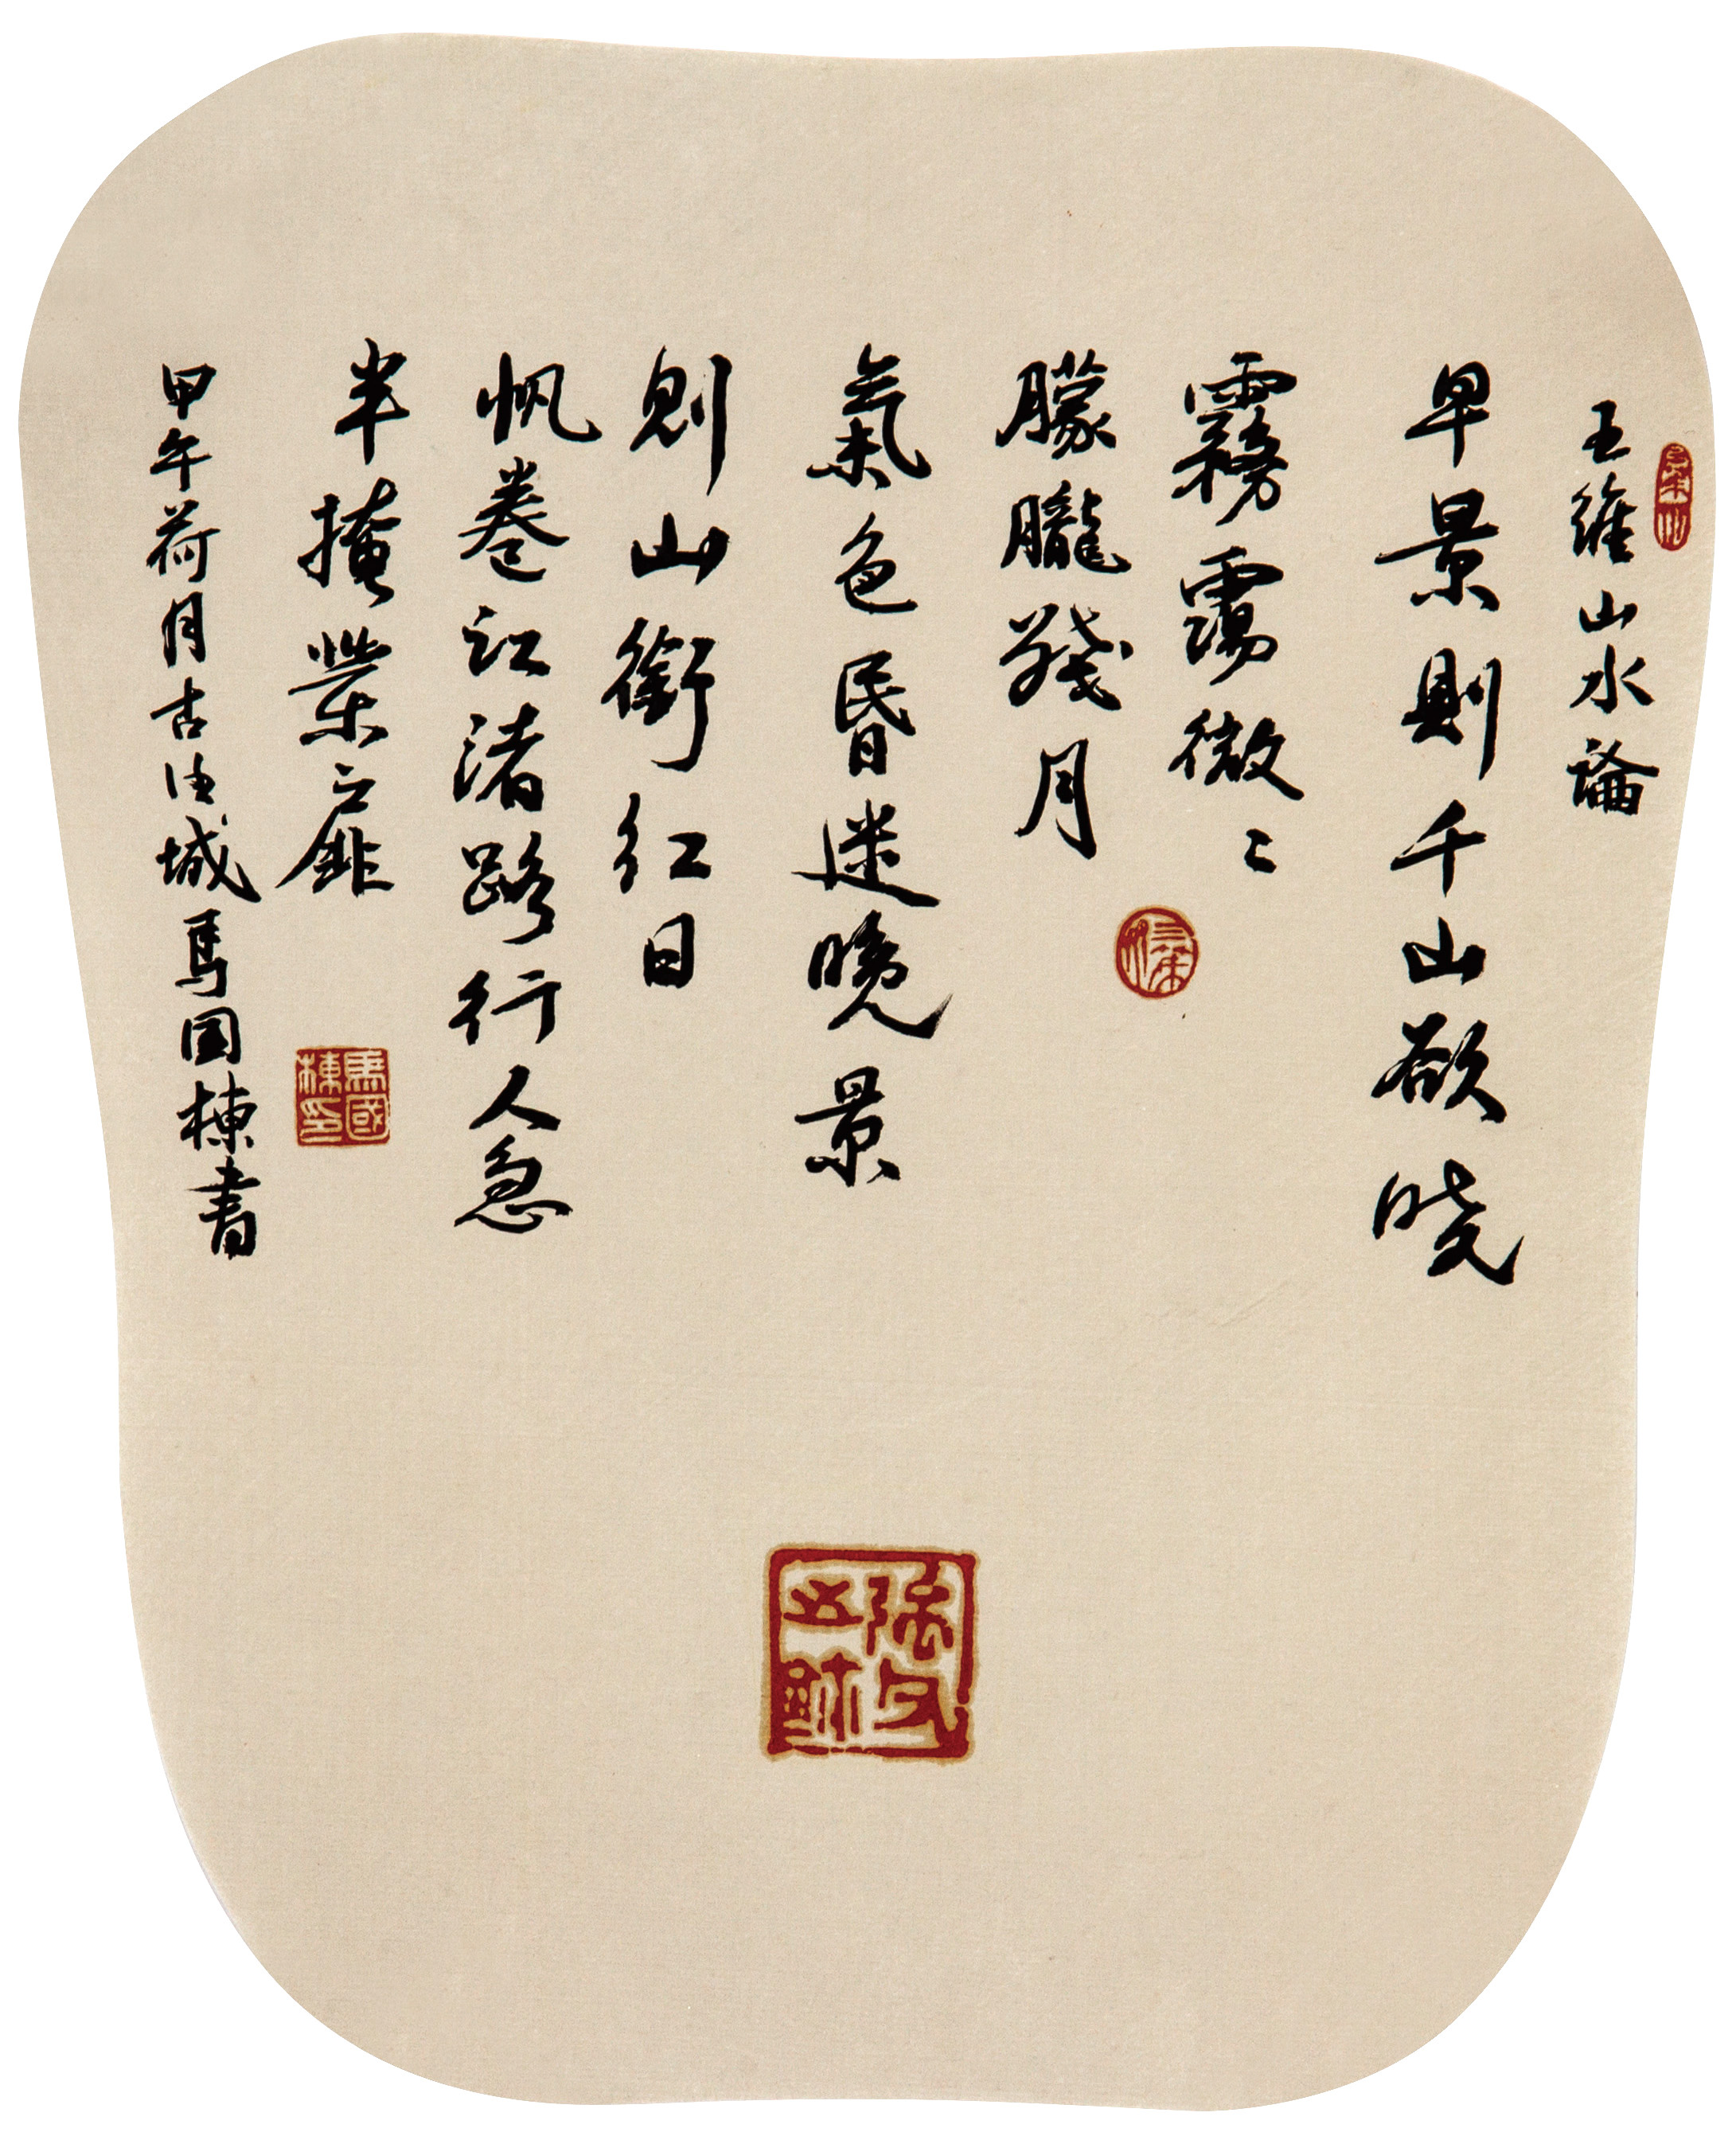 王維山水論
早景則千山欲晓
霧靄微〻
朦朧殘月
氣色昏迷晚景
則山銜紅日
帆卷江渚路行人急
半掩柴扉
甲午荷月古城馬国棟書
馬國棟印